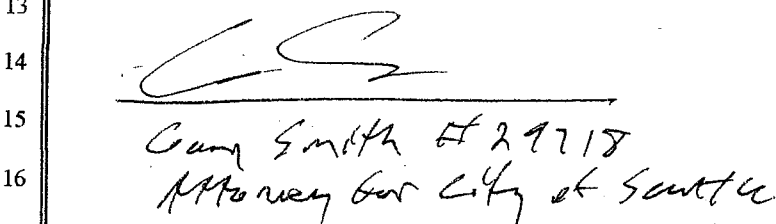 13
14
15
Gary Smith # 29718
16
Attorney for City of Seattle